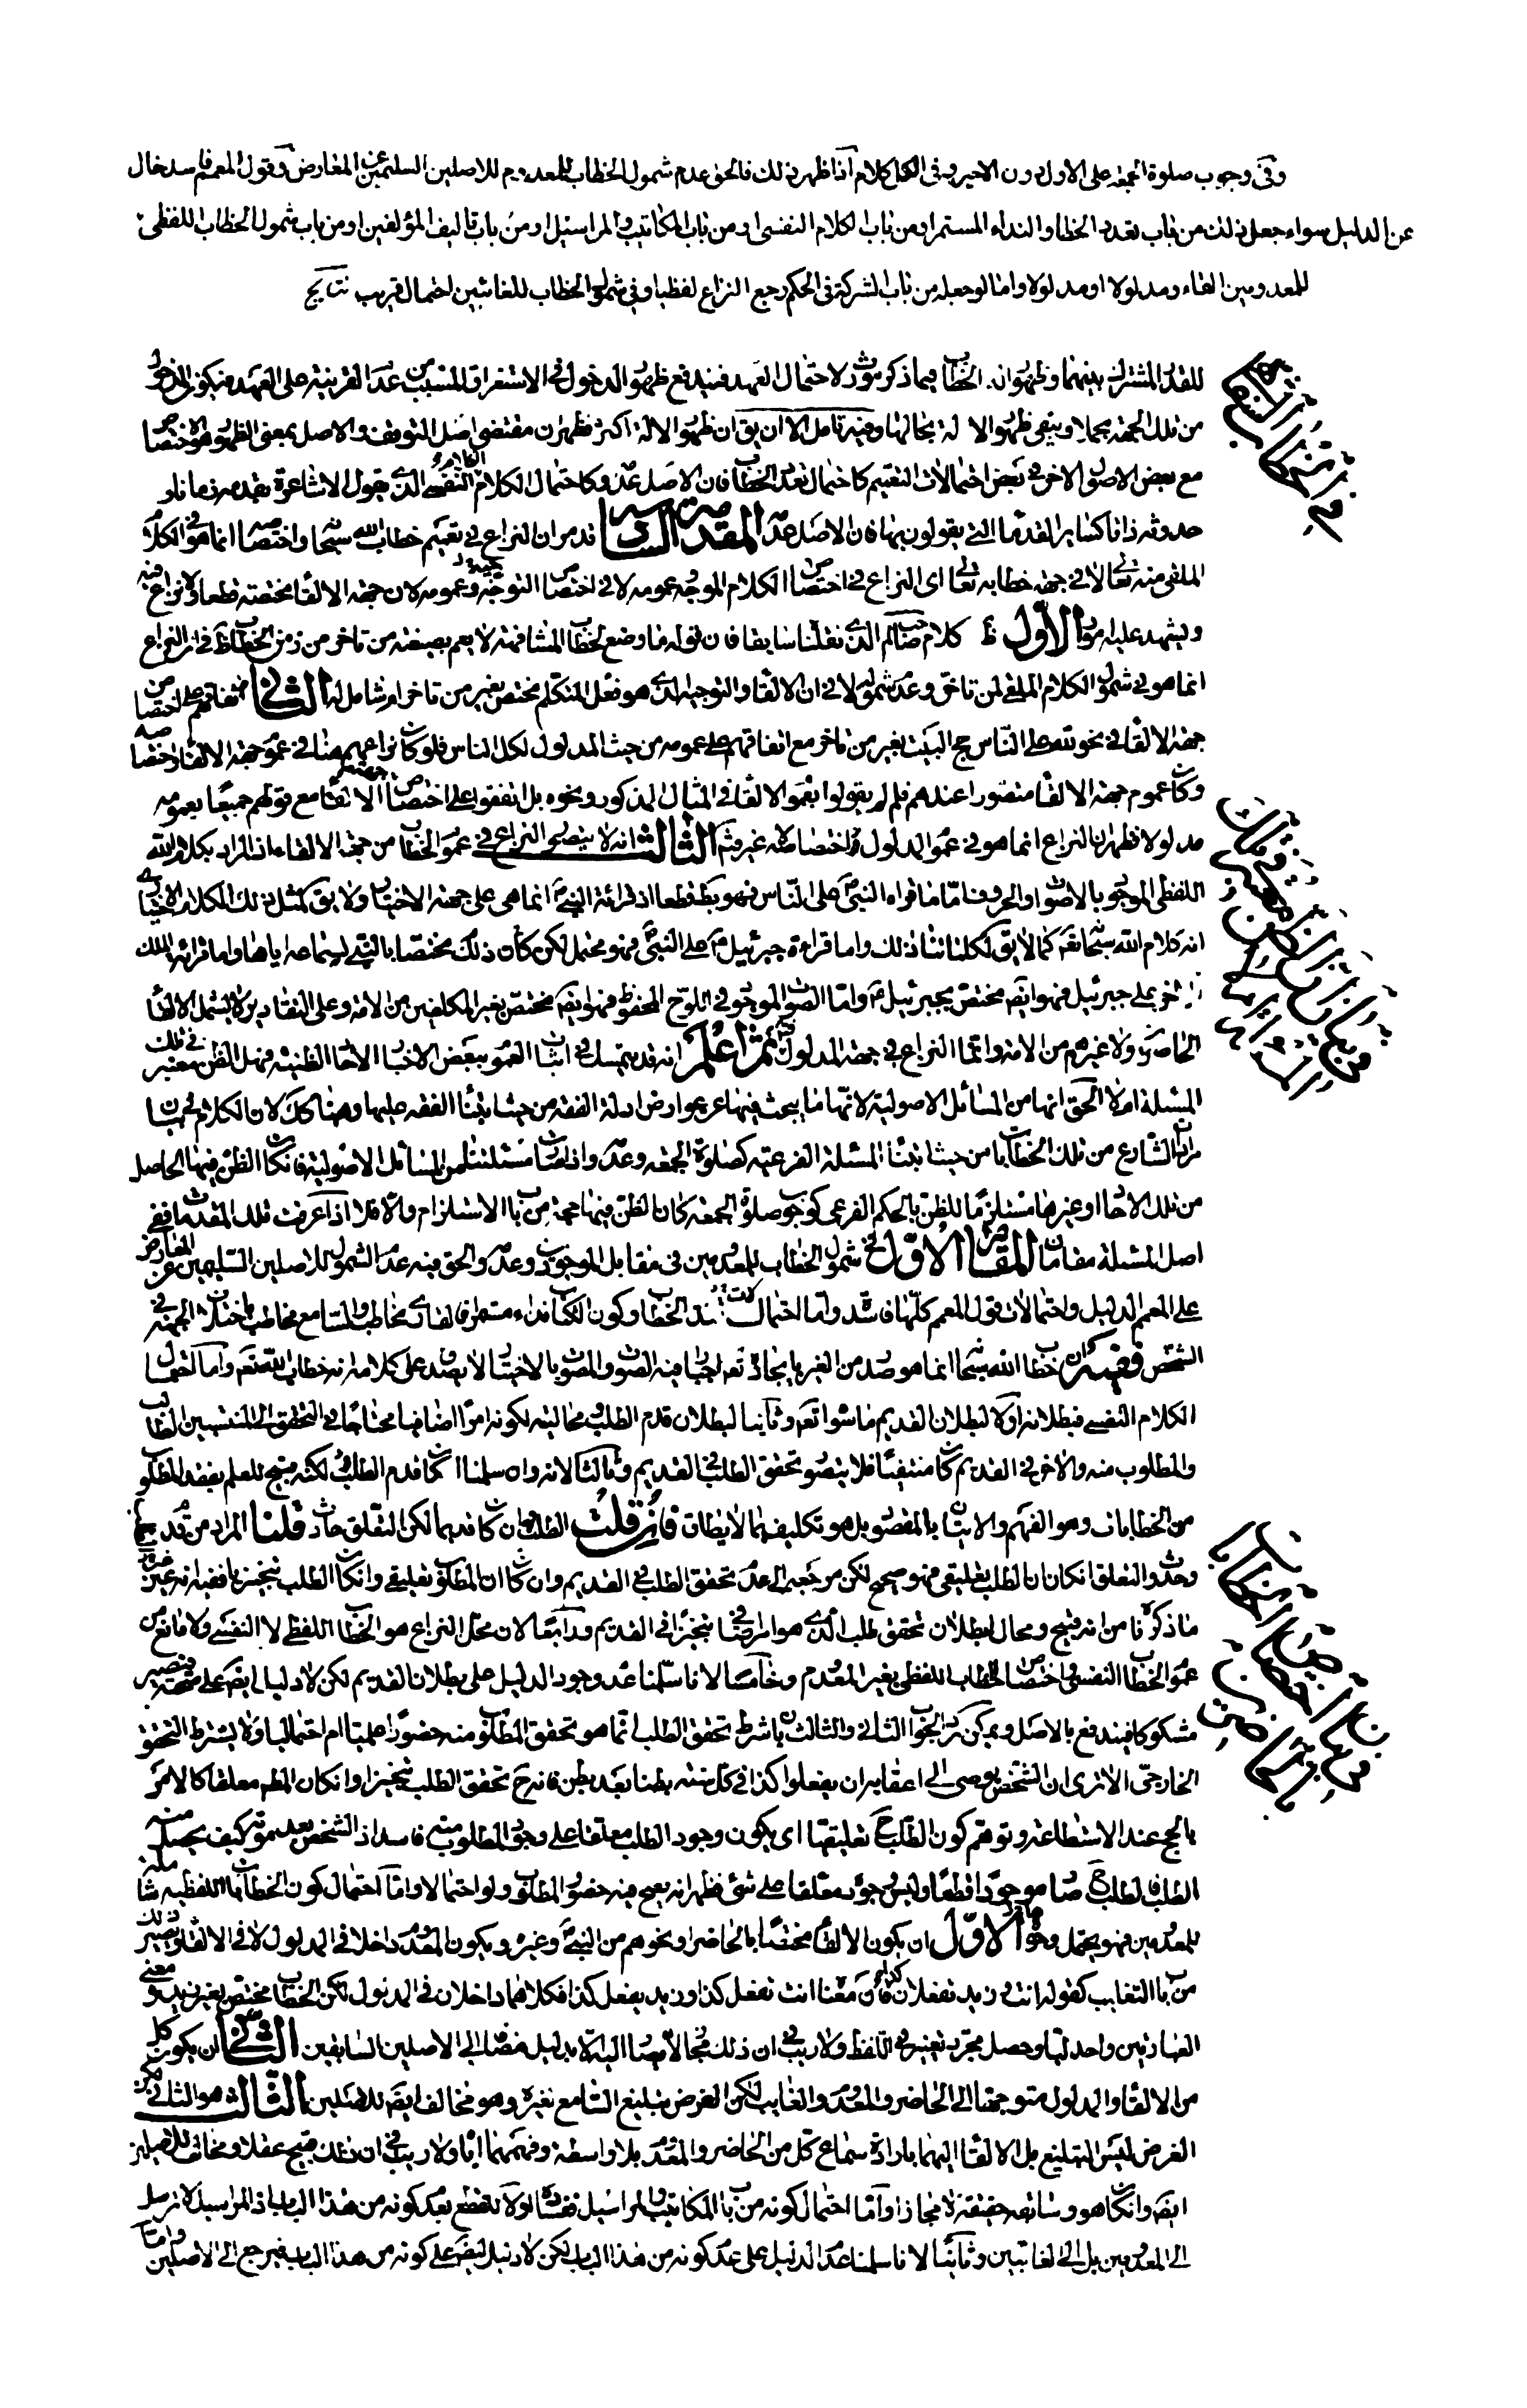 وفى وجوب صلوة الجمعة على الاول دون الاخير وفى الكل كلام اذا ظهر ذلك فالحق عدم شمول الخطاب للمعدوم للاصلين السليمين عن المعارض وقول المعمم فاسد خال
عن الدليل سواء جعل ذلك من باب تعدد الخطاب والنداء المستمر او من باب الكلام النفسى او من باب المكاتيب والمراسيل او من باب تاليف المؤلفين او من باب شمول الخطاب اللفظى
للمعدومين القاء ومدلولا او مدلولا واما لو جعله من باب الشركة فى الحكم رجع النزاع لفظيا وفى شمول الخطاب للغائبين احتمال قريب
للقدر المشترك بينهما وظهور ان الخطاب فيما ذكر مورث لاحتمال العهد فيندفع ظهور الدخول فى الاستغراق المسبب من عدم القرينة على العهد فيكون المدخول
من تلك الجهة مجملا ويبقى ظهور الالة بحالها وفيه تامل الا ان يق ان ظهور الالة اكثر فظهر ان مقتضى اصل التوقيف والاصل بمعنى الظهور هو الاختصاص
مع بعض الاصول الاخر فى بعض احتمالات التعميم كاحتمال تعدد الخطاب فان الاصل عدمه وكاحتمال الكلام النفسى الذى يقول الاشاعرة بقدمه زمانا و
حدوثه ذاتا كساير القدماء التى يقولون بها فان الاصل عدمه المقدمة السادسة قد مر ان النزاع فى تعميم خطاب الله سبحانه واختصاصه انما هو فى الكلام
الملقى منه تعالى لا فى جهة خطابه تعالى اى النزاع فى اختصاص الكلام الموجه وعمومه لا فى اختصاص التوجه وعمومه لان جهة الالقاء مختصة قطعا ولا نزاع فيه
ويشهد عليه امور الاول ظ كلام صاحب لم الذى نقلنا سابقا فان قوله ما وضع لخطاب المشافهة لا يعم بصيغته من تاخر عن زمن الخطاب ظ فى ان النزاع
انما هو فى شمول الكلام الملقى لمن تاخر وعدم شموله لا فى ان الالقاء والتوجيه الذى هو فعل المتكلم مختص بغير من تاخر ام شامل له الثانى اتفاقهم على اختصاص
جهة الالقاء فى نحو لله على الناس حج البيت بغير من تاخر مع اتفاقهم على عمومه من حيث المدلول لكل الناس فلو كان نزاعهم هنا فى عموم جهة الالقاء واختصاصه
وكان عموم جهة الالقاء متصورا عندهم فلم لم يقولوا بعموم الالقاء فى المثال المذكور ونحوه بل اتفقوا على اختصاص جهة الالقاء مع قولهم جميعا بعمومه
مدلولا فظهر ان النزاع انما هو فى عموم المدلول واختصاصه لا غير فتم الثالث انه لا يصح النزاع فى عموم الخطاب من جهة الالقاء اذ المراد بكلام الله
اللفظى الموجود بالاصوات والحروف اما ما قراه النبى على الناس فهو بط قطعا اذ قرائة النبى انما هى على جهة الاخبار ولا يق لمثل ذلك الكلام الاخبارى
انه كلام الله سبحانه كما لا يق لكلامنا ذلك واما قراءة جبرئيل على النبى فهو محتمل لكن كان ذلك مختصا بالنبى لسماعه اياها واما قرائة الملك
الاخر على جبرئيل فهو ايضا مختص بجبرئيل واما الصوت الموجود فى اللوح المحفوظ فهو ايضا مختص بغير المكلفين من الامة وعلى التقادير لا يشمل الالقاء
الحاضرين ولا غيرهم من الامة وانما النزاع فى جهة المدلول ثم اعلم انه قد يتمسك فى اثبات العموم ببعض الاخبار الاحاد الظنية فهل الظن معتبر فى تلك
المسئلة ام لا الحق انها من المسائل الاصولية لانها ما يبحث فيها عن عوارض ادلة الفقه من حيث ابتناء الفقه عليها وهنا كك لان الكلام فى بيان
مراد الشارع من تلك الخطابات من حيث ابتناء المسئلة الفرعية كصلوة الجمعة وعدمه واذا صارت مسئلتنا من المسائل الاصولية فان كان الظن فيها الحاصل
من تلك الاحاد او غيرها مستلزما للظن بالحكم الفرعى كوجوب صلوة الجمعة كان الظن فيها حجة من باب الاستلزام والا فلا اذا عرفت تلك المقدمات ففى
اصل المسئلة مقامان المقام الاول فى شمول الخطاب للمعدومين فى مقابل الموجودين وعدمه والحق فيه عدم الشمول للاصلين السليمين عن المعارض
على المعمم الدليل واحتمالات قول المعمم كلها فاسدة واما احتمال تعدد الخطاب وكون الكتاب نداء مستمرا فالقارى مخاطب والسامع مخاطب باختلاف الجهة فى
الشخص ففيه ان خطاب الله سبحانه انما هو صدر من الغير بايجاده تعالى اجبارا فيه الصوت والصوت بالاختيار لا يصدق على كلامه انه خطاب الله تعم واما احتمال
الكلام النفسى فبطلانه اولا لبطلان القديم ما سواه تعم وثانيا لبطلان قدم الطلب ومحاليته لكونه امرا اضافيا محتاجا فى التحقق الى المنتسبين الطالب
والمطلوب منه والاخر فى القديم كان منتفيا فلا يتصور تحقق الطلب فى القديم وثالثا لانه وان سلمنا امكان قدم الطلب لكنه قبيح للعلم بفقد المطلوب
من الخطابات وهو الفهم والاتيان بالمقصود بل هو تكليف بما لا يطاق فان قلت الطلب وان كان قديما لكن التعلق حادث قلنا المراد من قدمهما
وحدوث التعلق ان كان ان الطلب تعليقى فهو صحيح لكن مرجعه الى عدم تحقق الطلب فى القديم وان كان ان المطلوب تعليقى وان كان الطلب تنجيزيا ففيه انه عين
ما ذكرنا من انه قبيح ومحال لبطلان تحقق طلب الذى هو امر اضافى تنجيزا فى القديم ورابعا لان محل النزاع هو الخطاب اللفظى لا النفسى ولا مانع من
عموم الخطاب النفسى واختصاص الخطاب اللفظى بغير المعدوم وخامسا لانا سلمنا عدم وجود الدليل على بطلان القديم لكن لا دليل ايضا على صحته فيصير
مشكوكا فيندفع بالاصل ويمكن رد الجواب الثانى والثالث بان شرط تحقق الطلب انما هو تحقق المطلوب منه حضورا علميا ام احتماليا ولا يشترط التحقق
الخارجى الا ترى ان الشخص يوصى الى اعقابه ان يفعلوا كذا فى كل سنة بطنا بعد بطن فانه ح تحقق الطلب تنجيزا وان كان المطم معلقا كالامر
بالحج عند الاستطاعة وتوهم كون الطلب ح تعليقيا اى يكون وجود الطلب معلقا على وجود المطلوب منه فاسد اذ الشخص بعد موته كيف يحصل منه
الطلب فالطلب ح صار موجودا قطعا وليس وجوده معلقا على شئ فظهر انه يصح فيه حضور المطلوب ولو احتمالا واما احتمال كون الخطابات اللفظية شاملة
للمعدومين فهو يحتمل وجوها الاول ان يكون الالقاء مختصا بالحاضر او نحوهم من النبى وغيره ويكون المعدوم داخلا فى المدلول لا فى الالقاء فيصير ذلك
من باب التغليب كقوله انت وزيد تفعلان كذا فان معناه انت تفعل كذا وزيد يفعل كذا فكلاهما داخلان فى المدلول لكن الخطاب مختص بغير زيد ومعنى
العبارتين واحد لها وحصل مجرد تغيير فى اللفظ ولا ريب فى ان ذلك مجاز لا يصار اليه الا بدليل مضافا الى الاصلين السابقين الثانى ان يكون كل
من الالقاء والمدلول متوجها الى الحاضر والمعدوم والغايب لكن الغرض تبليغ السامع غيره وهو مخالف ايضا للاصلين الثالث هو الثانى لكن
الغرض ليس التبليغ بل الالقاء اليهما بارادة سماع كل من الحاضر والمعدوم بلا واسطة وفهمهما اياه ولا ريب فى ان ذلك قبيح عقلا ومخالف للاصلين
ايضا وان كان هو وسابقه حقيقة لا مجازا واما احتمال كونه من باب المكاتيب والمراسيل ففساده اولا للقطع بعدم كونه من هذا الباب اذ المراسيل لا ترسل
الى المعدومين بل الى الغائبين وثانيا لانا سلمنا عدم الدليل على عدم كونه من هذا الباب لكن لا دليل ايضا على كونه من هذا الباب فيرجع الى الاصلين واما